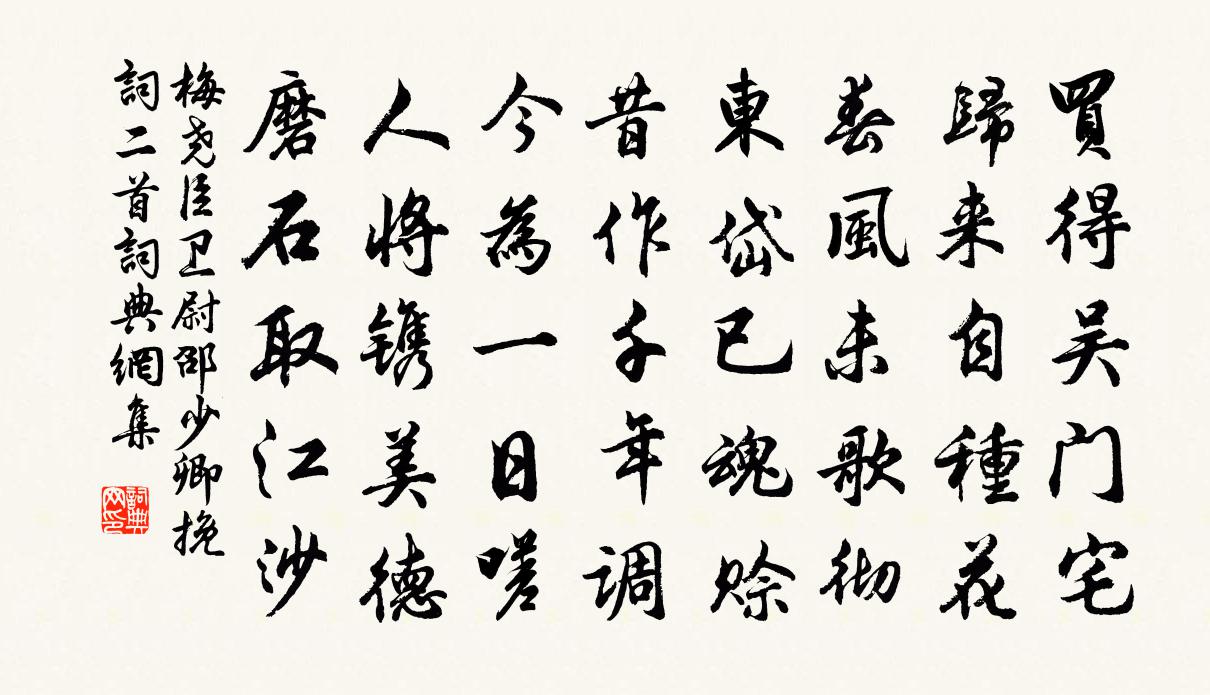 買得吴门宅
歸来自種花
春風未歌彻
東岱已魂赊
昔作千年调
今為一日嗟
人將镌美德
磨石取江沙
梅尧臣卫尉邵少卿挽
詞二首詞典網集
詞典
网印